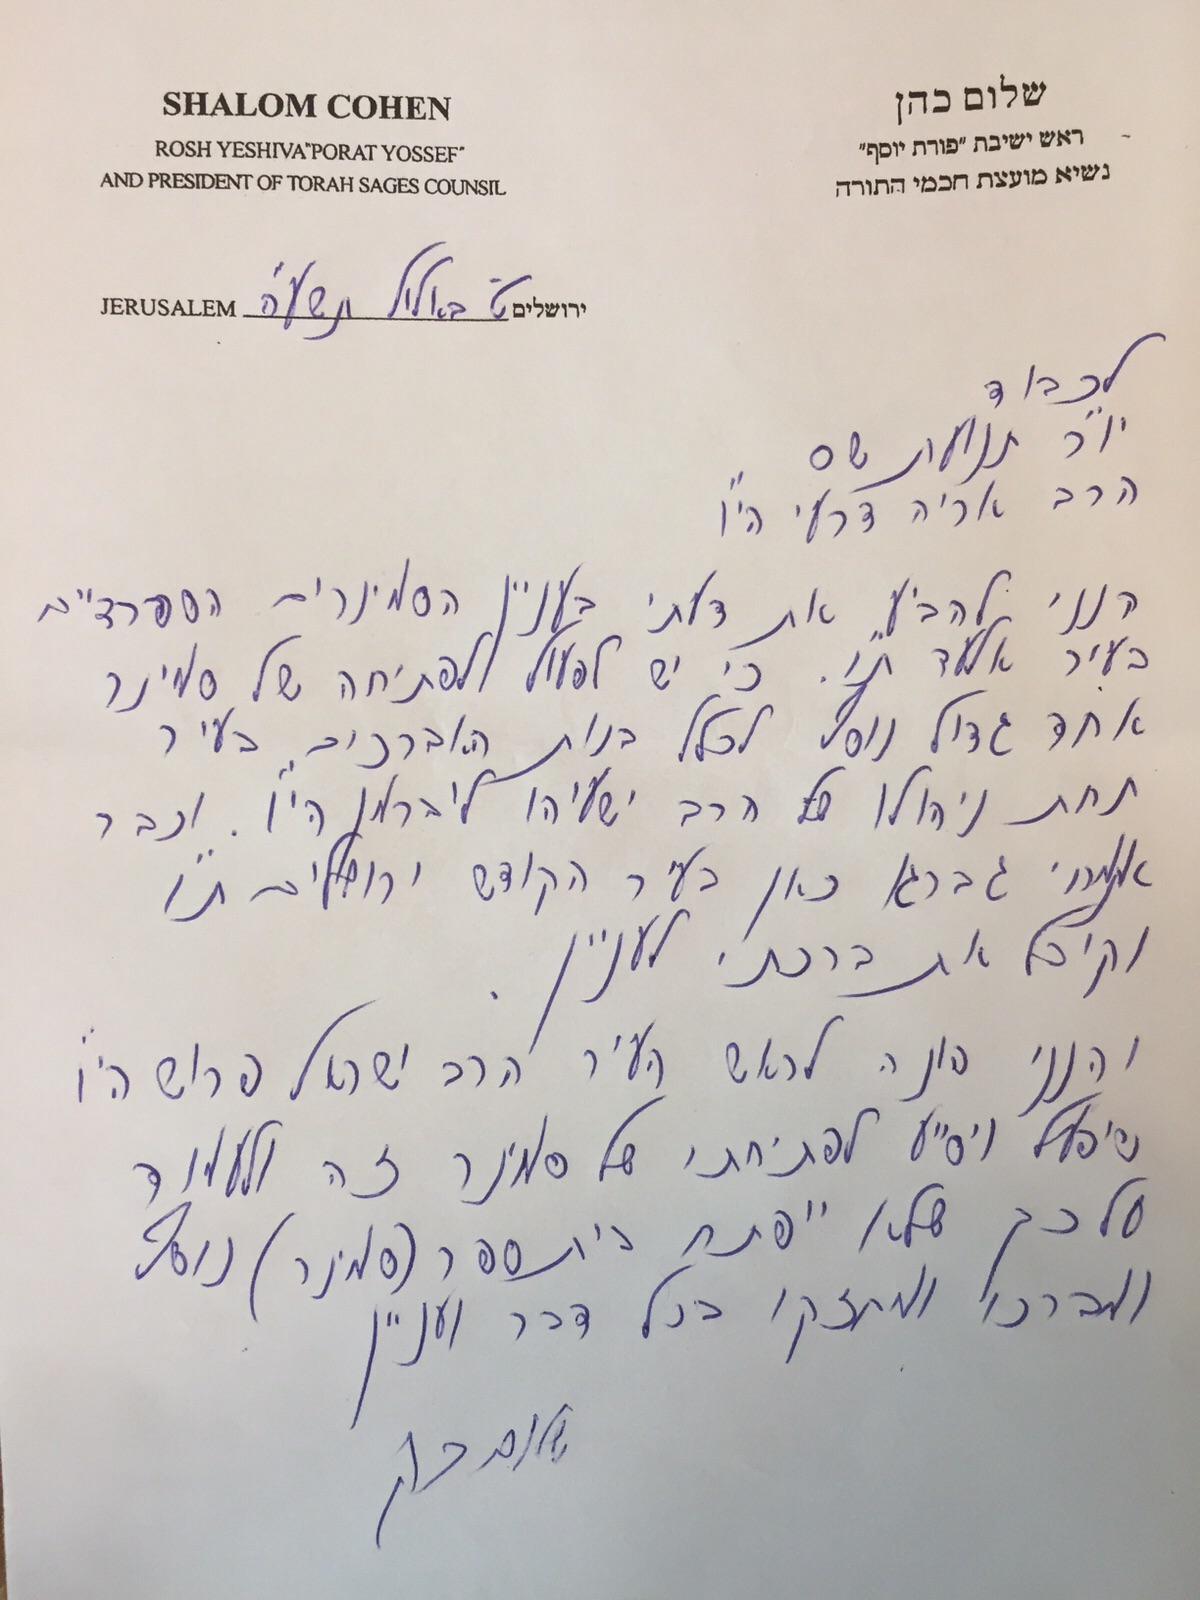 SHALOM COHEN
ROSH YESHIVA"PORAT YOSSEF"
AND PRESIDENT OF TORAH SAGES COUNSIL
שלום כהן
ראש ישיבת "פורת יוסף"
נשיא מועצת חכמי התורה
JERUSALEM ט' באלול תשע"ה ירושלים
לכבוד
יו"ר תנועת שס
הרב אריה דרעי הי"ו
הנני להביע את דעתי בעניין הסמינרים הספרד"ים
בעיר אלעד ת"ו. כי יש לפעול לפתיחה של סמינר
אחד גדול נוסף לכלל בנות האברכים בעיר
תחת ניהולו של הרב ישעיהו ליברמן הי"ו. וכבר
גברא כאן בעיר הקודש ירושלים ת"ו
וקיבל את ברכתי לעניין.
והנני פונה לראש העיר הרב ישראל פרוש הי"ו
שיפעל ויסייע לפתיחתי של סמינר זה ולעמוד
על כך שלא ייפתח בית ספר (סמינר) נוסף
ומברכו ומחזקו בכל דבר ועניין
שלום כהן